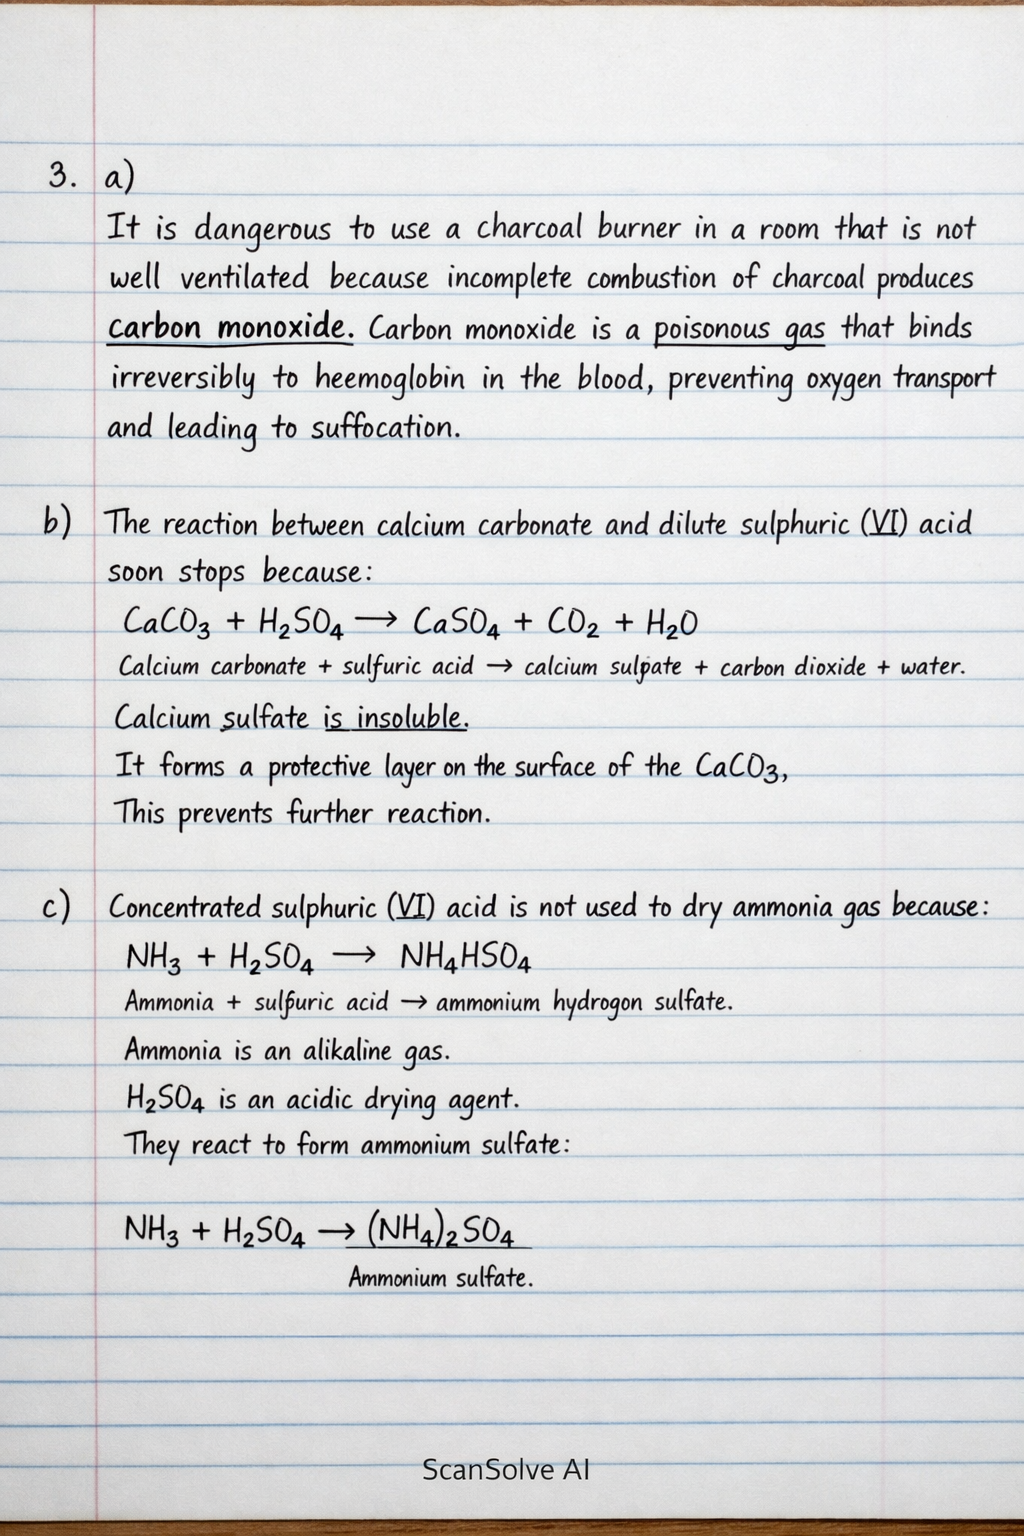 3. a)
It is dangerous to use a charcoal burner in a room that is not
well ventilated because incomplete combustion of charcoal produces
carbon monoxide. Carbon monoxide is a poisonous gas that binds
irreversibly to heemoglobin in the blood, preventing oxygen transport
and leading to suffocation.
b) The reaction between calcium carbonate and dilute sulphuric (VI) acid
soon stops because:
CaCO₃ + H₂SO₄ → CaSO₄ + CO₂ + H₂O
Calcium carbonate + sulfuric acid → calcium sulpate + carbon dioxide + water.
Calcium sulfate is insoluble.
It forms a protective layer on the surface of the CaCO₃,
This prevents further reaction.
c) Concentrated sulphuric (VI) acid is not used to dry ammonia gas because:
NH₃ + H₂SO₄ → NH₄HSO₄
Ammonia + sulfuric acid → ammonium hydrogon sulfate.
Ammonia is an alikaline gas.
H₂SO₄ is an acidic drying agent.
They react to form ammonium sulfate:
NH₃ + H₂SO₄ → (NH₄)₂SO₄
Ammonium sulfate.
ScanSolve AI